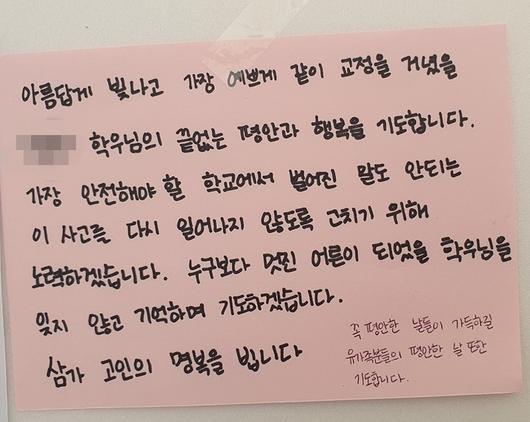 아름답게 빛나고 가장 예쁘게 같이 교정을 거녔을
학우님의 끝없는 평안과 행복을 기도합니다.
가장 안전해야 할 학교에서 벌어진 말도 안되는
이 사고를 다시 일어나지 않도록 고치기 위해
노력하겠습니다. 누구보다 멋진 어른이 되었을 학우님을
잊지 않고 기억하며 기도하겠습니다.
삼가 고인의 명복을 빕니다
꼭 평안한 날들이 가득하길
유가족분들의 평안한 날 또한
기도합니다.